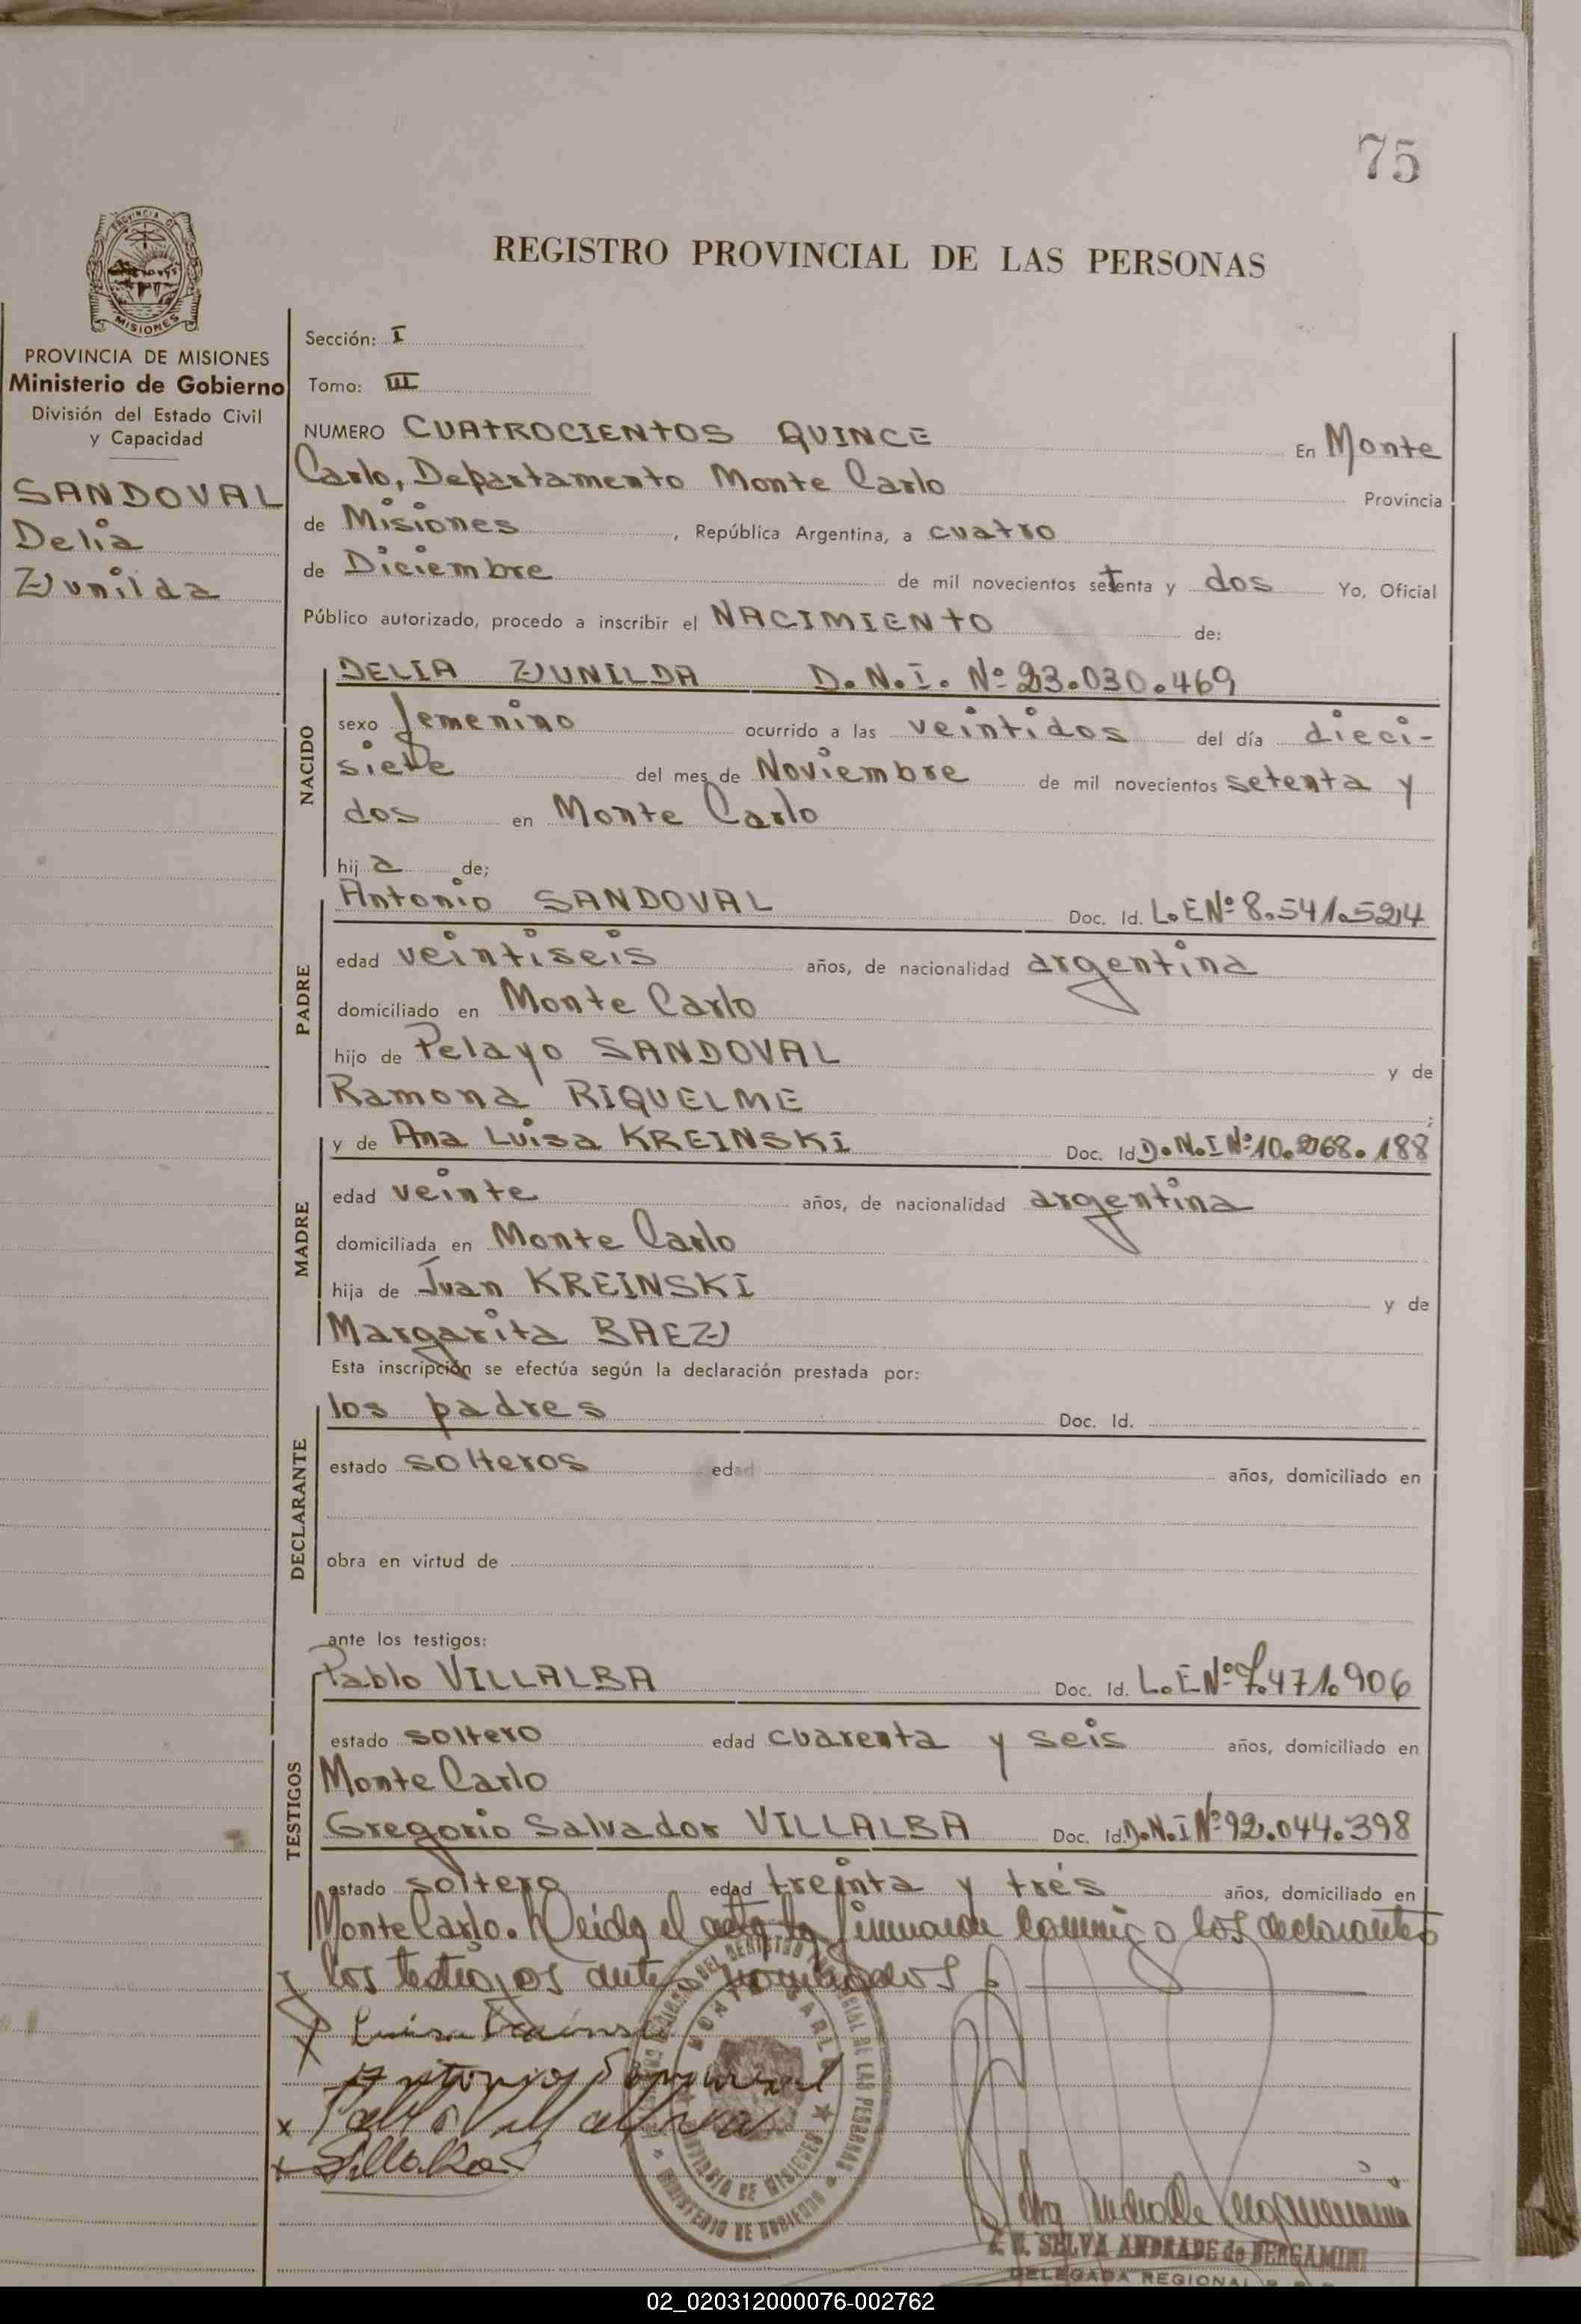 75
PROVINCIA DE
MISIONES
REGISTRO PROVINCIAL DE LAS PERSONAS
PROVINCIA DE MISIONES
Ministerio de Gobierno
División del Estado Civil
y Capacidad
SANDOVAL
Delia
Zunilda
Sección: I
Tomo: III
NUMERO CUATROCIENTOS QUINCE En Monte
Carlo, Departamento Monte Carlo Provincia
de Misiones, República Argentina, a cuatro
de Diciembre de mil novecientos setenta y dos Yo, Oficial
Público autorizado, procedo a inscribir el NACIMIENTO de:
NACIDO
DELIA ZUNILDA D.N.I. Nº 23.030.469
sexo femenino ocurrido a las veintidos del día dieci-
siete del mes de Noviembre de mil novecientos setenta y
dos en Monte Carlo
hija de;
PADRE
Antonio SANDOVAL Doc. Id. L.E Nº 8.541.524
edad veintiseis años, de nacionalidad argentina
domiciliado en Monte Carlo
hijo de Pelayo SANDOVAL y de
Ramona RIQUELME;
MADRE
y de Ana Luisa KREINSKI Doc. Id D.N.I Nº 10.268.188
edad veinte años, de nacionalidad argentina
domiciliada en Monte Carlo
hija de Juan KREINSKI y de
Margarita BAEZ
Esta inscripción se efectúa según la declaración prestada por:
DECLARANTE
los padres Doc. Id.
estado solteros edad años, domiciliado en
obra en virtud de
ante los testigos:
TESTIGOS
Pablo VILLALBA Doc. Id. L.E Nº 7.471.906
estado soltero edad cuarenta y seis años, domiciliado en
Monte Carlo
Gregorio Salvador VILLALBA Doc. Id. D.N.I Nº 92.044.398
estado soltero edad treinta y trés años, domiciliado en
Monte Carlo. Leida el acta la firmaron conmigo los declarantes
y los testigos antes nombrados
Luisa
Antonio Sandoval
x Pablo Villalba
x Villalba
MONTE CARLO
PROVINCIA DE MISIONES
MINISTERIO DE GOBIERNO
SELVA ANDRADE de BERGAMINI
DELEGADA REGIONAL
02_020312000076-002762